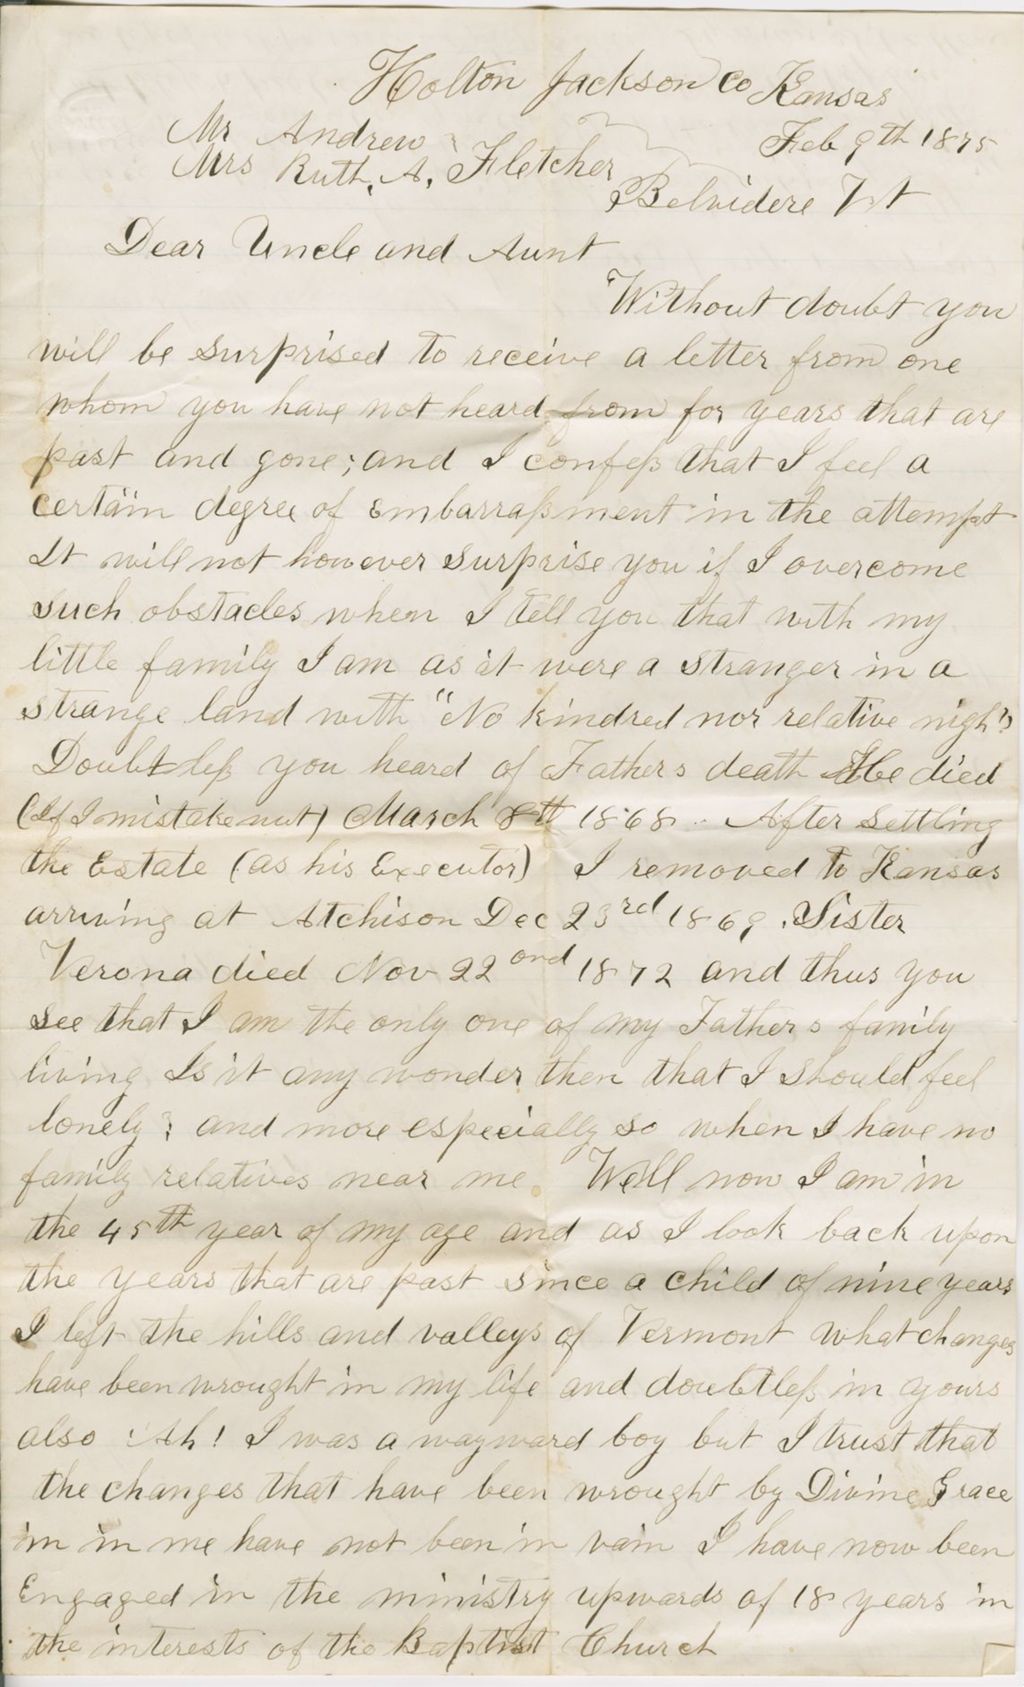 Holton Jackson Co Kansas
Feb 9th 1875
Mr Andrew
Mrs Ruth, A, Fletcher
Belvidere Vt
Dear Uncle and Aunt
Without doubt you
will be surprised to receive a letter from one
whom you have not heard from for years that are
past and gone; and I confess that I feel a
certain degree of embarrassment in the attempt
It will not however surprise you if I overcome
such obstacles when I tell you that with my
little family I am as it were a stranger in a
strange land with "No kindred nor relative nigh"
Doubtless you heard of Fathers death He died
(If I mistake not) March 8th 1868 . After settling
the Estate (as his Executor) I removed to Kansas
arriving at Atchison Dec 23rd 1869. Sister
Verona died Nov 22ond 1872 and thus you
see that I am the only one of my Fathers family
living Is it any wonder then that I should feel
lonely? and more especially so when I have no
family relatives near me. Well now I am in
the 45th year of my age and as I look back upon
the years that are past since a child of nine years
I left the hills and valleys of Vermont what changes
have been wrought in my life and doubtless in yours
also ! Ah! I was a wayward boy but I trust that
the changes that have been wrought by Divine Grace
in in me have not been in vain I have now been
Engaged in the ministry upwards of 18 years in
the interests of the Baptist Church